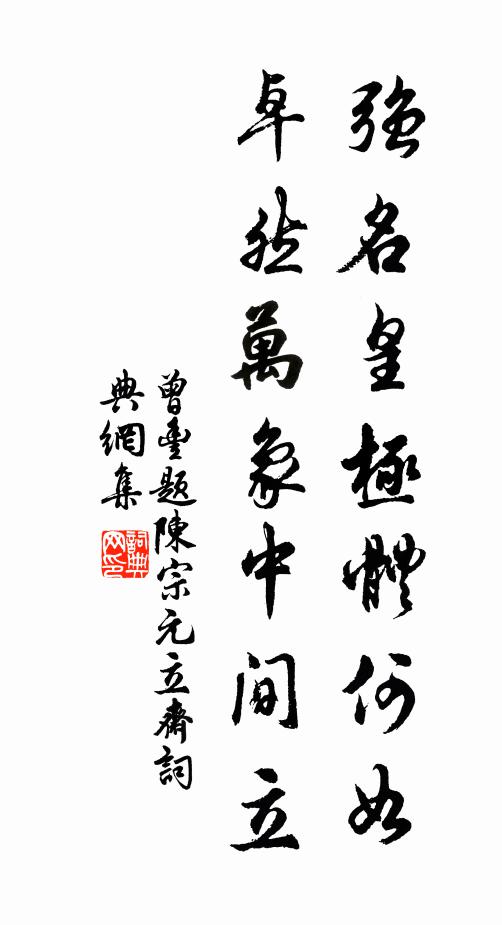 強名皇極體何如
卓然萬象中間立
曾豐題陳宗元立齋詞
典網集
詞典
网印